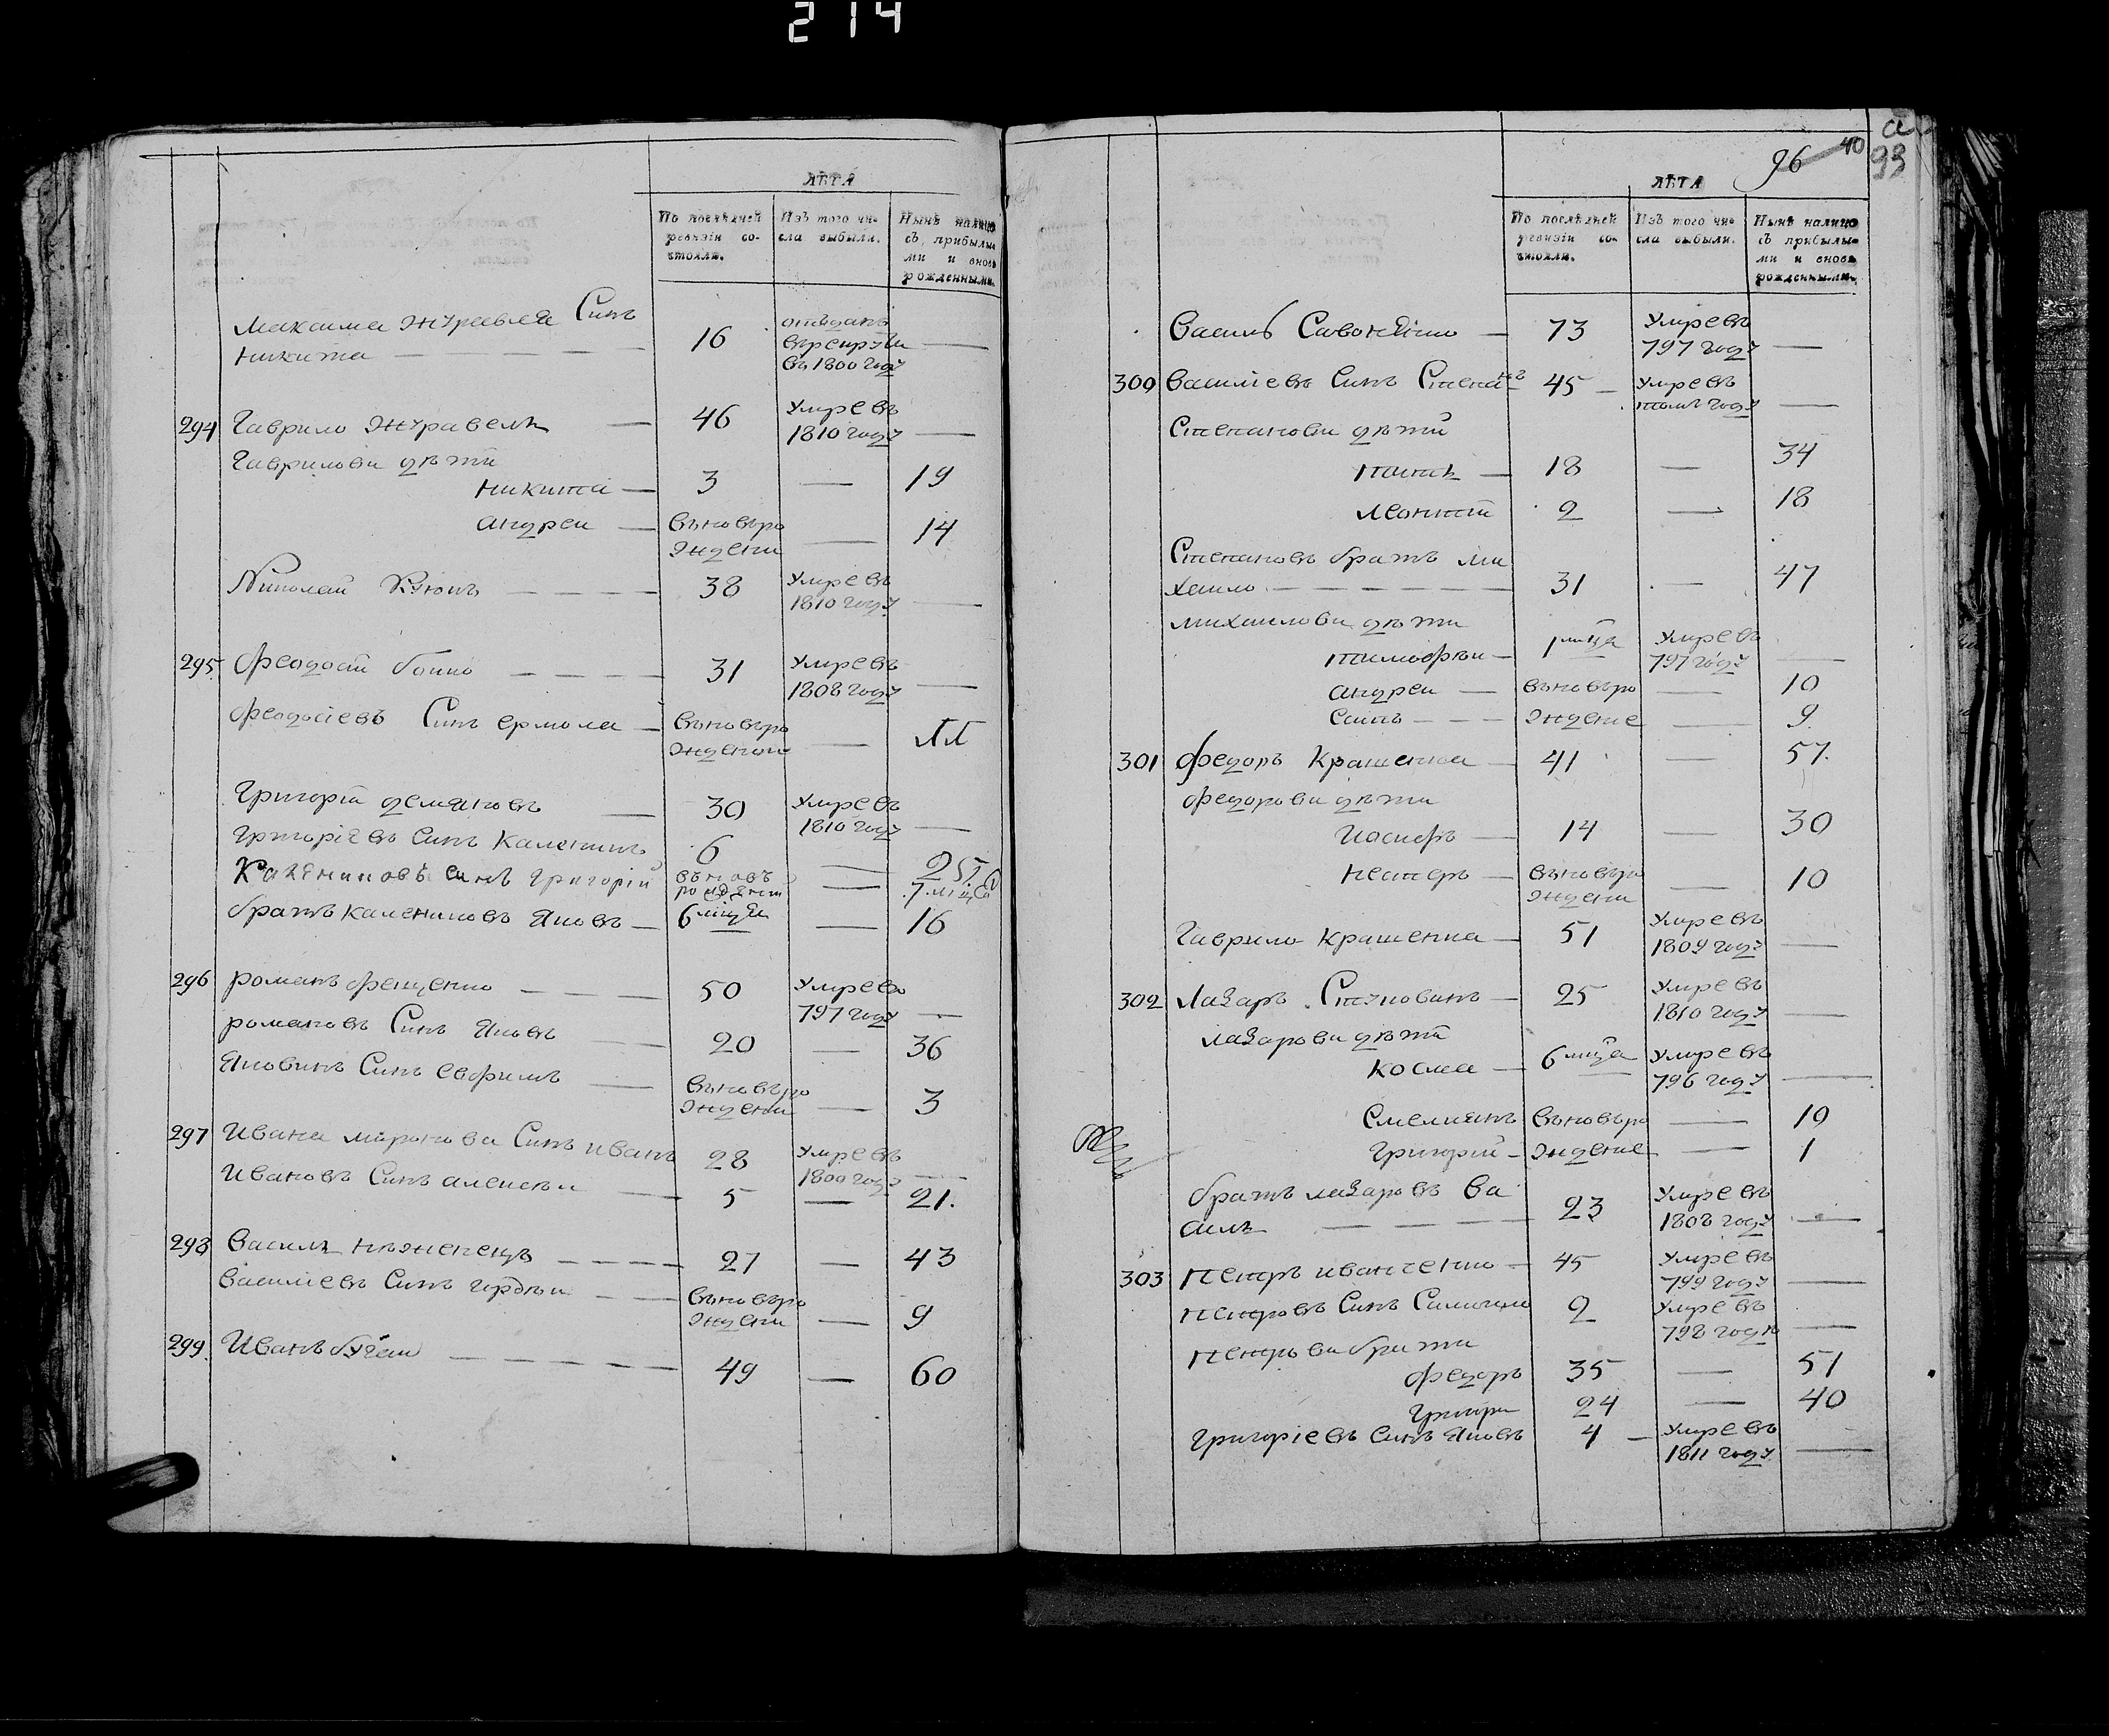 214
ЛѢТА
По послѣдней ревизіи состояли.
Изъ того числа выбыли.
Нынѣ налицо съ прибылыми и вновь рожденными.
Максима Журавля Синъ
Никита 16 отъданъ въ рекруты въ 1800 году —
294 Гаврило Журавель — 46 Умре въ 1810 году —
Гаврилови дѣти
Никита — 3 — 19
Андреи — въновърождени — 14
Николай 38 Умре въ 1810 году —
295 Феодосій Бойко 31 Умре въ 1808 году —
Феодосіевъ Синъ ермола — въновърожденой —
Григорій демяновъ — 30 Умре въ 1810 году —
Григоріевъ Синъ Каленикъ 6 —
Калениковъ синъ Григорій въновъ рожденій — 7 м҃ца
братъ калениковъ Яковъ — 6 м҃ца — 16
296 романъ Фещенко 50 Умре въ 797 году —
романовъ Синъ Яковъ — 20 — 36
Яковинъ Синъ Евфимъ — въновърождени — 3
297 Ивана миронова Синъ иванъ 28 Умре въ 1809 году —
Ивановъ Синъ алексѣи — 5 — 21.
298 Василь нѣженецъ 27 — 43
Василіевъ Синъ гордѣи — въновърождени — 9
299. Иванъ бугаи 49 — 60
а
96 40
93
ЛѢТА
По послѣдней ревизіи состояли.
Изъ того числа выбыли.
Нынѣ налицо съ прибылыми и вновь рожденными.
Василь Савонкіно — 73 Умре въ 797 году —
300 Василіевъ Синъ Степанъ 45 — Умре въ томъ году —
Степанови дѣти
— 18 — 34
Леонтій 2 — 18
Степановъ братъ ми
хаило 31 — 47
михаилови дѣти
тимофѣи — 1 м҃ца Умре въ 797 году —
андреи — въновъро — 10
ждение — 9
301 Федоръ Крашенка — 41 — 57.
Федорови дѣти
Иосифъ — 14 — 30
нестеръ — въновърождени — 10
Гаврило Крашенка — 51 Умре въ 1809 году —
302 Лазаръ Ступовинъ — 25 Умре въ 1810 году —
лазарови дѣти
Косма — 6 м҃ца Умре въ 796 году —
Емелиянъ въновъро — 10
Григорій — ждение — 1
братъ лазаровъ Ва
силь 23 Умре въ 1808 году —
303 петръ иванченко — 45 Умре въ 799 году —
петровъ Синъ 2 Умре въ 798 году —
петрови брати
Федоръ 35 — 51
Григори 24 — 40
Григоріевъ Синъ Яковъ 4 — Умре въ 1811 году —